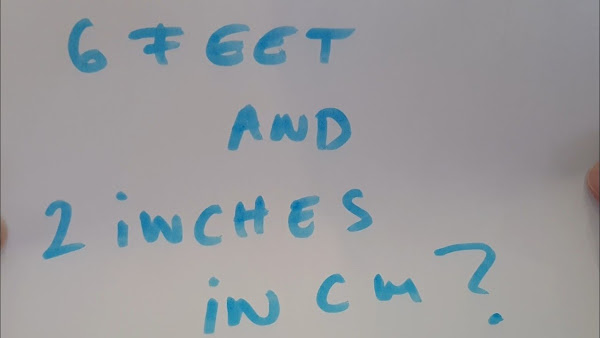 6 FEET
AND
2 iNCHES
iN Cm?